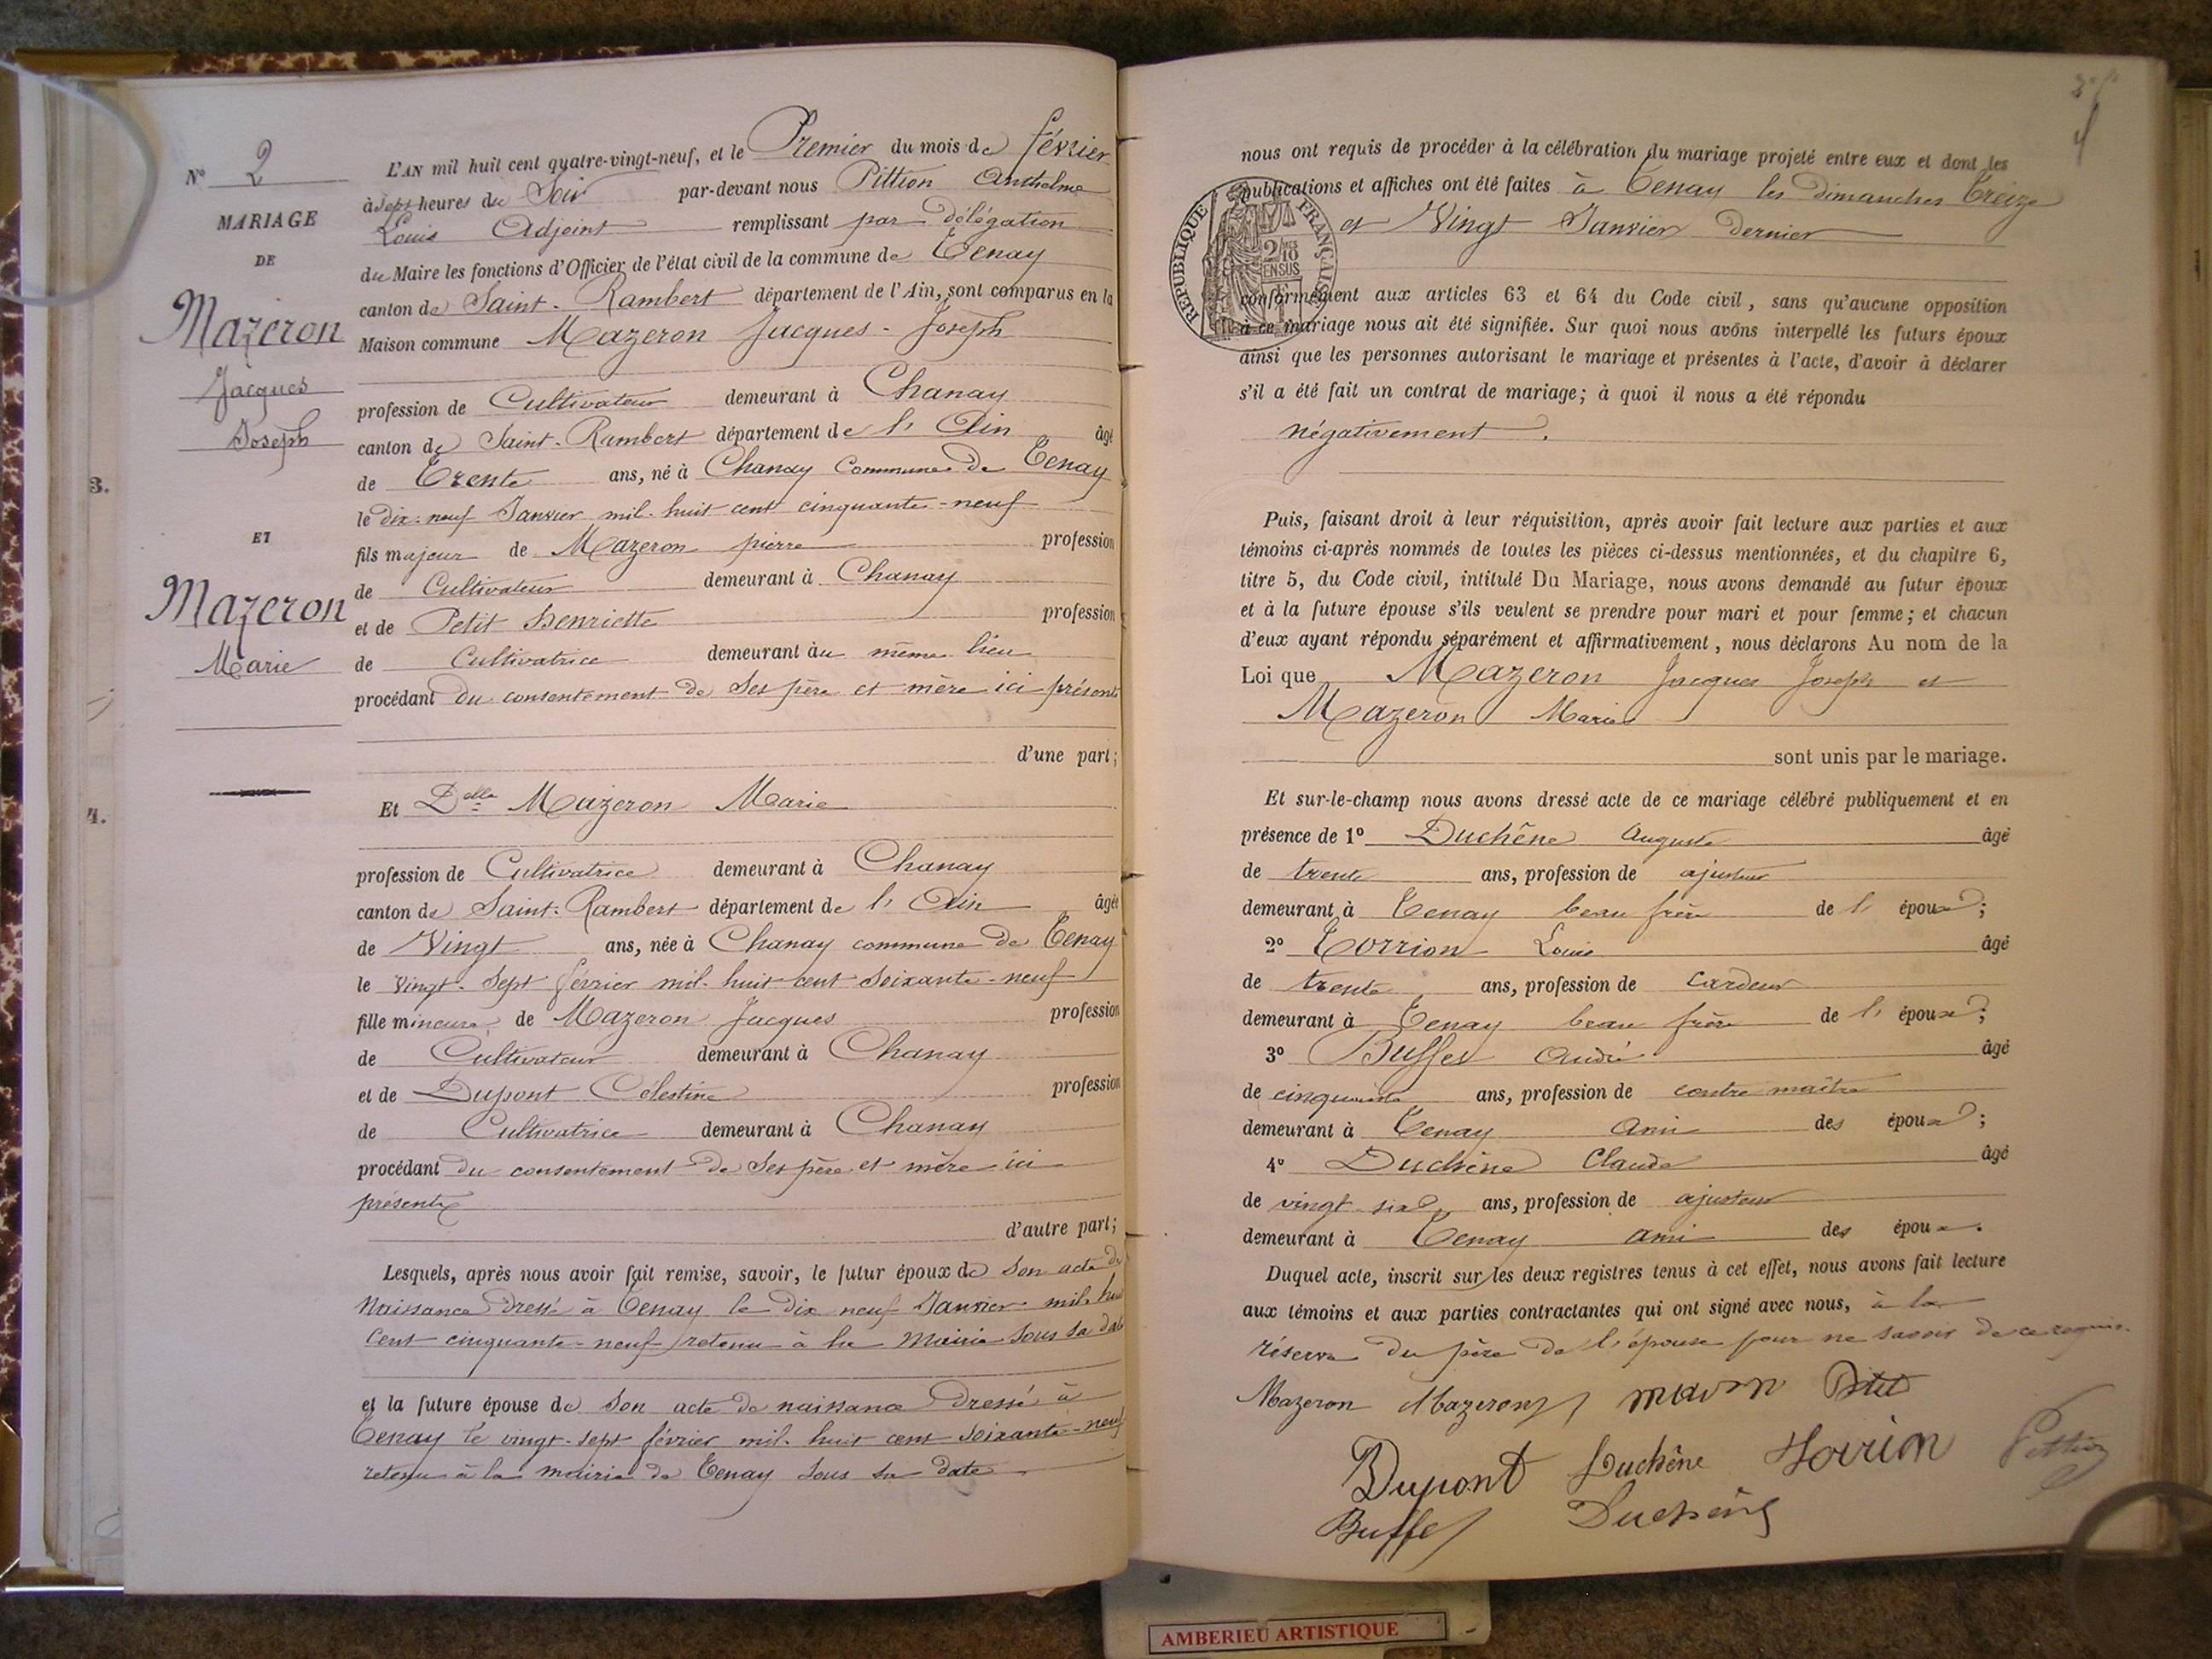 N° 2
MARIAGE
DE
Mazeron
Jacques
Joseph
ET
Mazeron
Marie
3.
4.
L'AN mil huit cent quatre-vingt-neuf, et le Premier du mois de février
à Sept heures du Soir par-devant nous Pittion Anthelme
Louis Adjoint remplissant par délégation
du Maire les fonctions d'Officier de l'état civil de la commune de Tenay
canton de Saint-Rambert département de l'Ain, sont comparus en la
Maison commune Mazeron Jacques-Joseph
profession de Cultivateur demeurant à Chanay
canton de Saint-Rambert département de l'Ain âgé
de Trente ans, né à Chanay Commune de Tenay
le dix-neuf Janvier mil-huit cent cinquante-neuf
fils majeur de Mazeron pierre profession
de Cultivateur demeurant à Chanay
et de Petit henriette profession
de Cultivatrice demeurant au même lieu
procédant du consentement de Ses père et mère ici présents
d'une part;
Et Delle Mazeron Marie
profession de Cultivatrice demeurant à Chanay
canton de Saint-Rambert département de l'Ain âgée
de Vingt ans, née à Chanay commune de Tenay
le Vingt-Sept février mil-huit cent Soixante-neuf
fille mineure de Mazeron Jacques profession
de Cultivateur demeurant à Chanay
et de Dupont Célestine profession
de Cultivatrice demeurant à Chanay
procédant du consentement de Ses père et mère ici
présents
d'autre part;
Lesquels, après nous avoir fait remise, savoir, le futur époux de Son acte de
Naissance Dressé à Tenay le Dix neuf Janvier mil hui
Cent cinquante-neuf retenu à la Mairie Sous Sa date
et la future épouse de Son acte de naissance Dressé à
Tenay le vingt-sept février mil-huit cent Soixante-neuf
retenu à la mairie de Tenay Sous Sa date
nous ont requis de procéder à la célébration du mariage projeté entre eux et dont les
publications et affiches ont été faites à Tenay les dimanches Treize
et Vingt Janvier dernier
REPUBLIQUE FRANÇAISE
2/10 EN SUS
conformément aux articles 63 et 64 du Code civil, sans qu'aucune opposition
à ce mariage nous ait été signifiée. Sur quoi nous avons interpellé les futurs époux
ainsi que les personnes autorisant le mariage et présentes à l'acte, d'avoir à déclarer
s'il a été fait un contrat de mariage; à quoi il nous a été répondu
négativement.
Puis, faisant droit à leur réquisition, après avoir fait lecture aux parties et aux
témoins ci-après nommés de toutes les pièces ci-dessus mentionnées, et du chapitre 6,
titre 5, du Code civil, intitulé Du Mariage, nous avons demandé au futur époux
et à la future épouse s'ils veulent se prendre pour mari et pour femme; et chacun
d'eux ayant répondu séparément et affirmativement, nous déclarons Au nom de la
Loi que Mazeron Jacques Joseph et
Mazeron Marie
sont unis par le mariage.
Et sur-le-champ nous avons dressé acte de ce mariage célébré publiquement et en
présence de 1° Duchêne Auguste âgé
de trente ans, profession de ajusteur
demeurant à Tenay beau frère de l' époux;
2° Torrion Louis âgé
de trente ans, profession de Cardeur
demeurant à Tenay beau frère de l' époux;
3° Buffet André âgé
de cinquante ans, profession de contre maître
demeurant à Tenay Ami des époux;
4° Duchêne Claude âgé
de vingt six ans, profession de ajusteur
demeurant à Tenay ami des époux.
Duquel acte, inscrit sur les deux registres tenus à cet effet, nous avons fait lecture
aux témoins et aux parties contractantes qui ont signé avec nous, à la
réserve du père de l'épouse pour ne savoir de ce requis.
Mazeron Mazeron Petit
Dupont Duchêne Torrion Pittion
Buffet Duchêne
AMBERIEU ARTISTIQUE